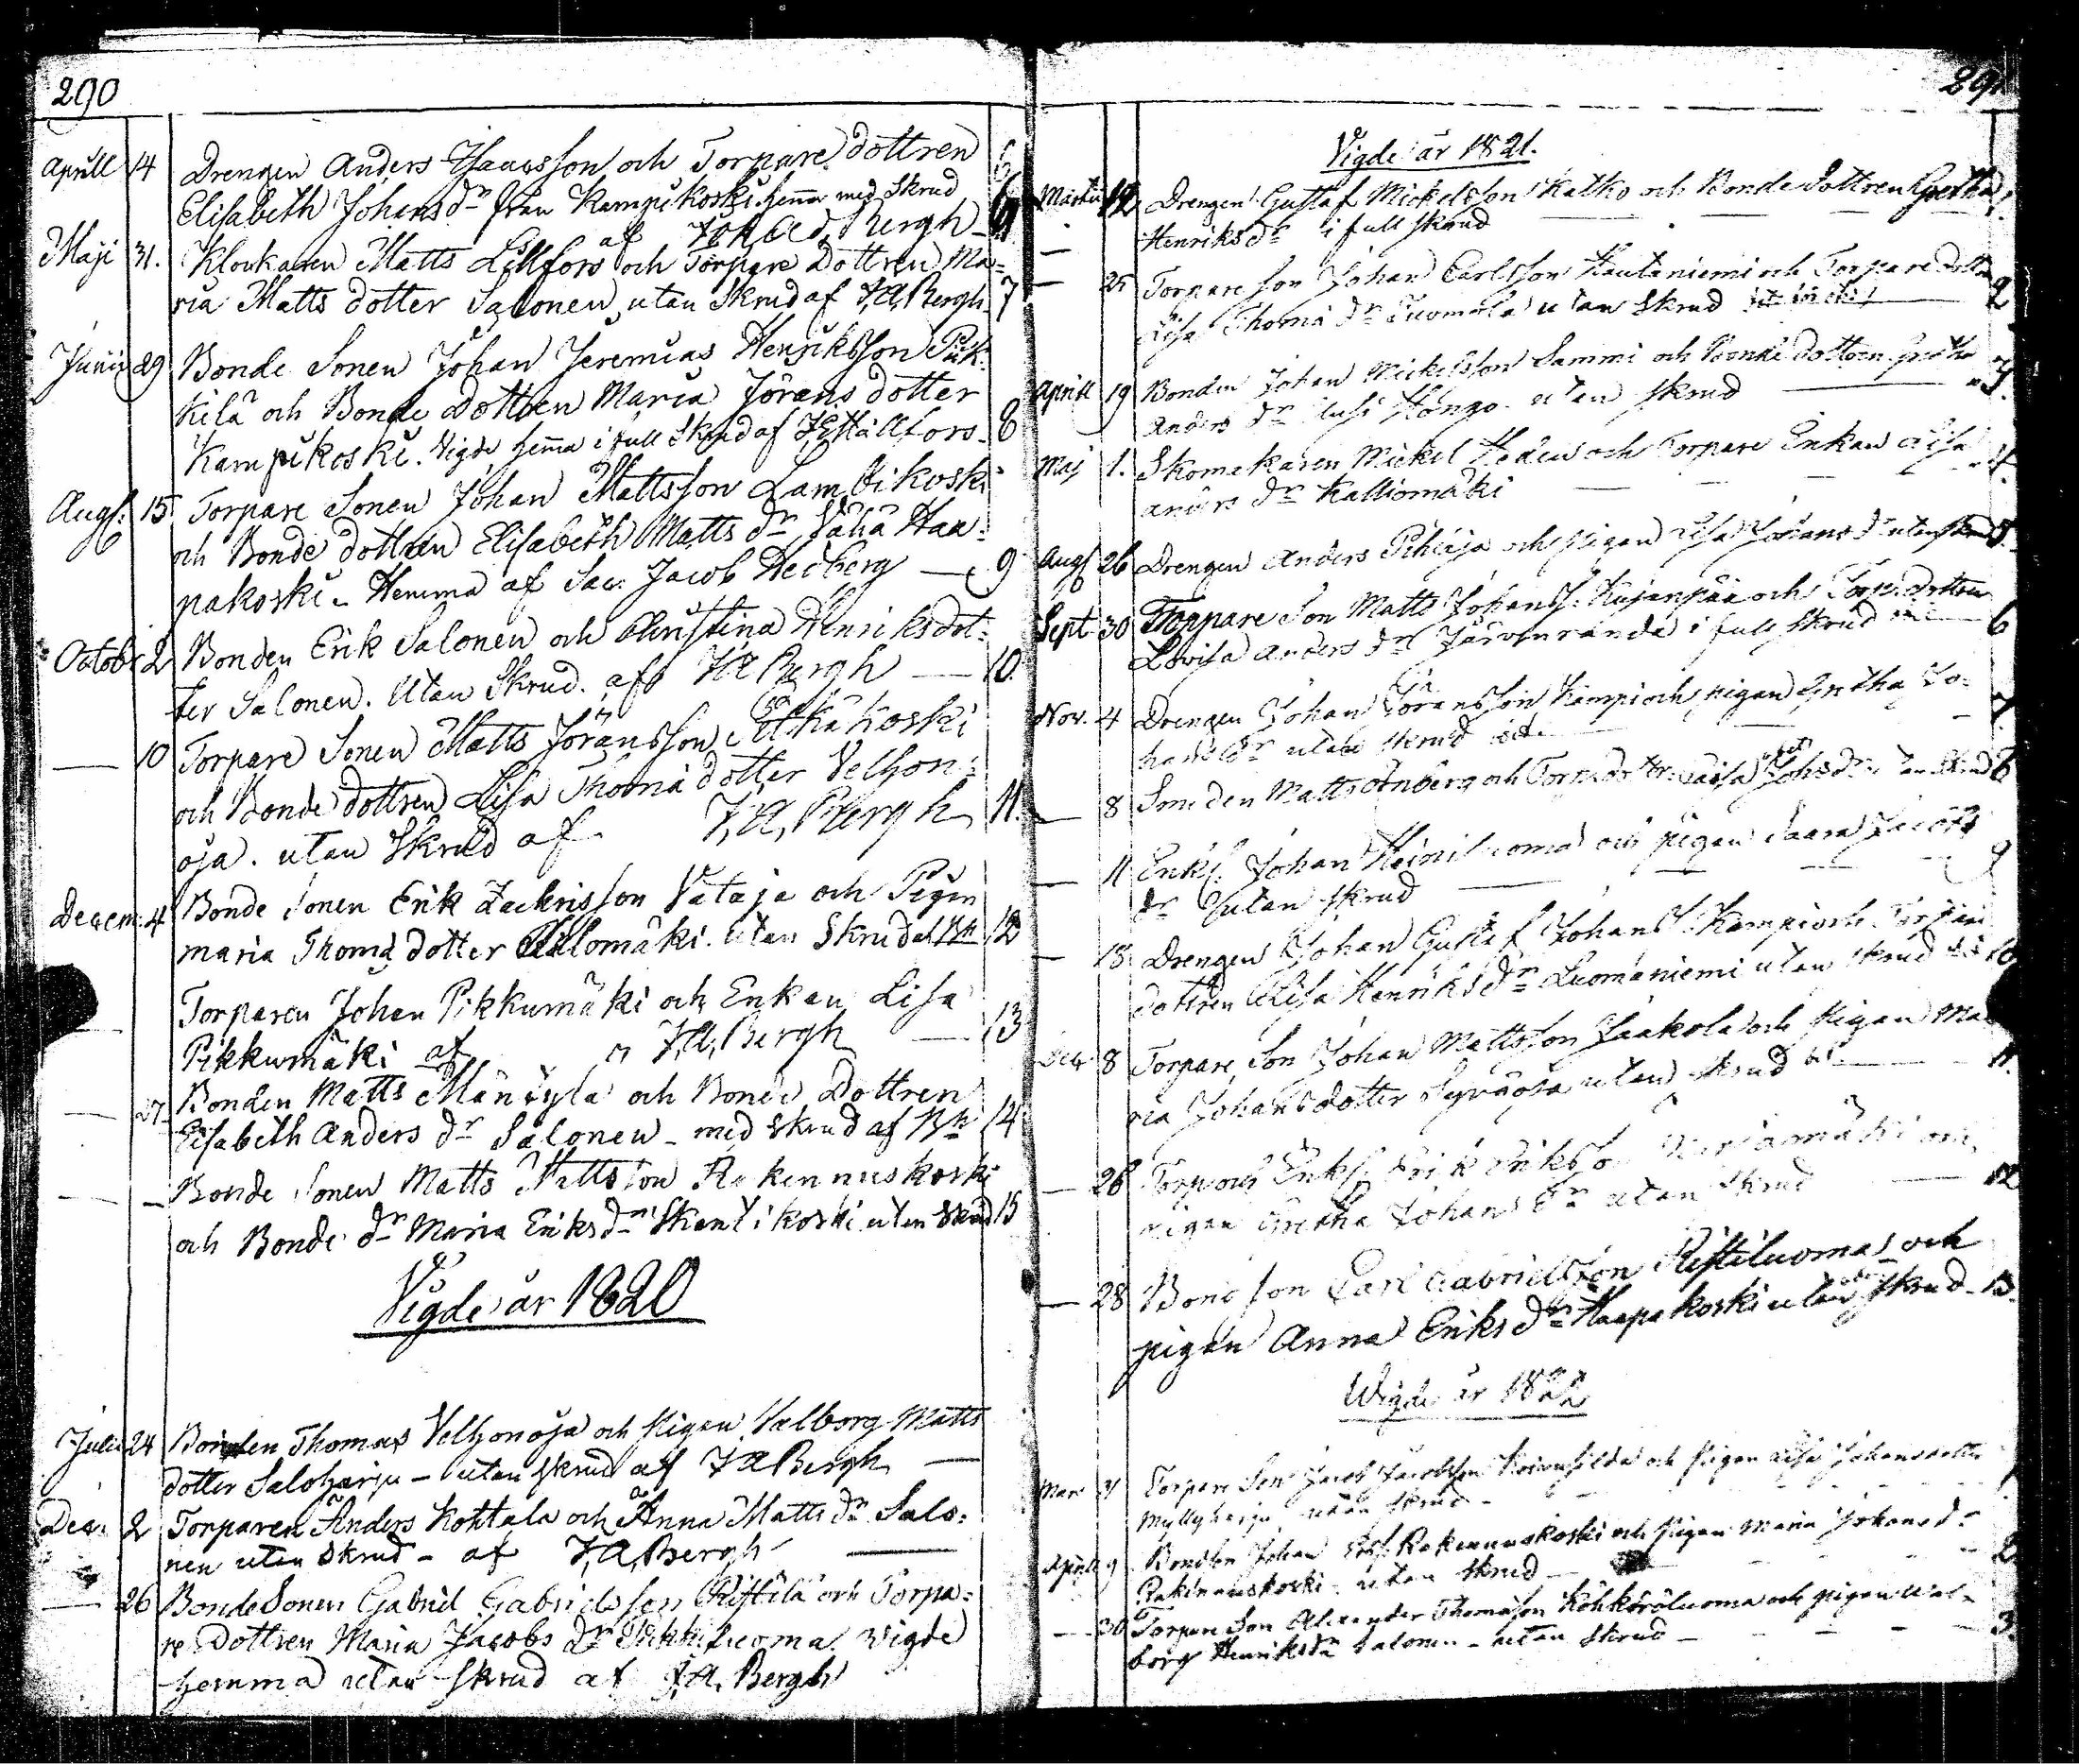 290
Aprill 14 Drengen Anders Isaacsson och Torpare dottren
Elisabeth Johans dr från Kampikoski. hemma med Skrud
af Joh. Ad. Bergh 6
Maji 31. Klockaren Matts Lillfors och Torpare Dottren Ma=
ria Matts dotter Salonen utan Skrud af J.A. Bergh. 7
Junii 29 Bonde Sonen Johan Jeremias Henriksson
kilä och Bonde Dottren Maria Jörans dotter
Kampikoski. Vigde hemma i full Skrud af Hällfors. 8
Augs: 15 Torpare Sonen Johan Mattsson Lambikoski
och Bonde dottren Elisabeth Matts dr Vähä Haa=
pakoski. Hemma af Sac: Jacob Hedberg 9
Octobr 2 Bonden Erik Salonen och Christina Henriksdot=
ter Salonen. Utan Skrud. af J A Bergh 10.
10 Torpare Sonen Matts Jöransson Pitkäkoski
och Bonde dottren Lisa Thomä dotter Velhon=
oja. utan Skrud af J, A, Bergh 11.
Decem: 4 Bonde Sonen Erik Zachrisson Vataja och Pigan
Maria Thomä dotter Ylilomäki. utan Skrud af Bh 12
Torparen Johan Pikkumäki och Enkan Lisa
Pikkumäki af J, A, Bergh 13
27. Bonden Matts Mäntylä och Bonde Dottren
Elisabeth Anders dr Salonen – med Skrud af Bh 14
Bonde Sonen Matts Mattsson Rakennuskoski
och Bonde dr Maria Eriks dr Skantikoski utan Skrud 15
Vigde år 1820
Julii 24 Bonden Thomas Velhonoja och Pigan Valborg Matts
dotter Saloharju – utan Skrud af J A Bergh
Dec: 2 Torparen Anders Kohtala och Anna Matts dr Salo=
nen utan Skrud – af J, A, Bergh
26 Bonde Sonen Gabriel Gabrielsson Ristilä och Torpa=
re Dottren Maria Jacobs dr vigde
hemma utan Skrud af J, A, Bergh
291
Vigde år 1821.
Martii 12 Drengen Gustaf Mickelsson Katko och Bonde dottren Gretha 1
Henriks dr i full skrud
25 Torpare Son Johan Carlsson Hautaniemi och Torpare dottr
Lisa Thomä dr Tuomela utan Skrud 2
Aprill 19 Bonden Johan Mickelsson Sammi och Bonde dottren Gretha 3.
Anders dr utan Skrud
Maj 1. Skomakaren Mickel Hedén och Torpare Enkan Lisa 4.
Anders dr Kalliomäki
Augs 26 Drengen Anders Pihlaja och Pigan Lisa Johans dr utan Skrud 5.
Sept 30 Torpare Son Matts Johanss: Kujanpää och Torp: dottren
Lovisa Anders dr Järvenranda i full Skrud 6
Nov. 4 Drengen Johan Jöransson Kampi och Pigan Gretha Jo=
hans dr utan Skrud 7
8 Smeden Matts och Torp: dottr: Cajsa Johs dr utan Skrud 8
11 Enkl: Johan Heiniluoma och Pigan Saara Jacobs
dr utan Skrud 9
18 Drengen Johan Gustaf Johans S. Kampi och Torpare
dottren Lisa Henriks dr Luomaniemi utan Skrud 10
Dec 8 Torpare Son Johan Mattsson Jaakola och Pigan Ma
ria Johans dotter Syväoja utan Skrud 11.
26 Torp och Enkl: Erik Eriksson och
Pigan Gretha Johans dr utan Skrud 12
28 Bond Son Carl Gabrielsson Ristiluoma och
Pigan Anna Eriks dr Haapakoski utan Skrud 13.
Wigde år 1822
Mars 31 Torpare Son Jacob Jacobsson och Pigan Lisa Johans dotter 1
Myllyharju utan Skrud
Aprill 9 Bondson Johan Ersson Rakennuskoski och Pigan Maria Johans dr
Rakennuskoski utan Skrud 2
30 Torpare Son Alexander Thomasson Köhköräluoma och Pigan Wal=
borg Henriks dr Salonen – utan Skrud 3.